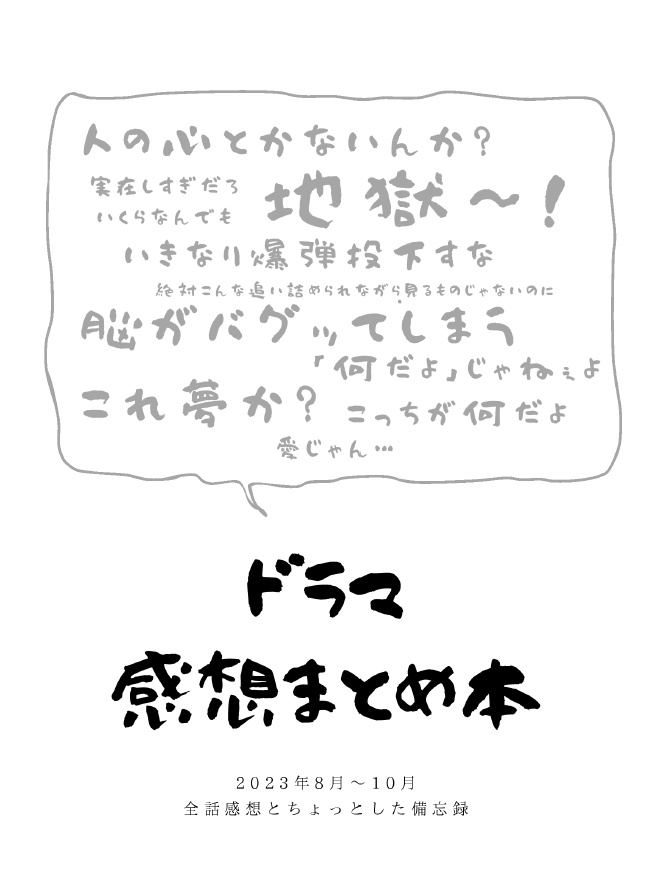 人の心とかないんか?
実在しすぎだろ
いくらなんでも
地獄〜!
いきなり爆弾投下すな
絶対こんな追い詰められながら見るものじゃないのに
脳がバグッてしまう
「何だよ」じゃねぇよ
これ夢か?
こっちが何だよ
愛じゃん…
ドラマ
感想まとめ本
2023年8月〜10月
全話感想とちょっとした備忘録